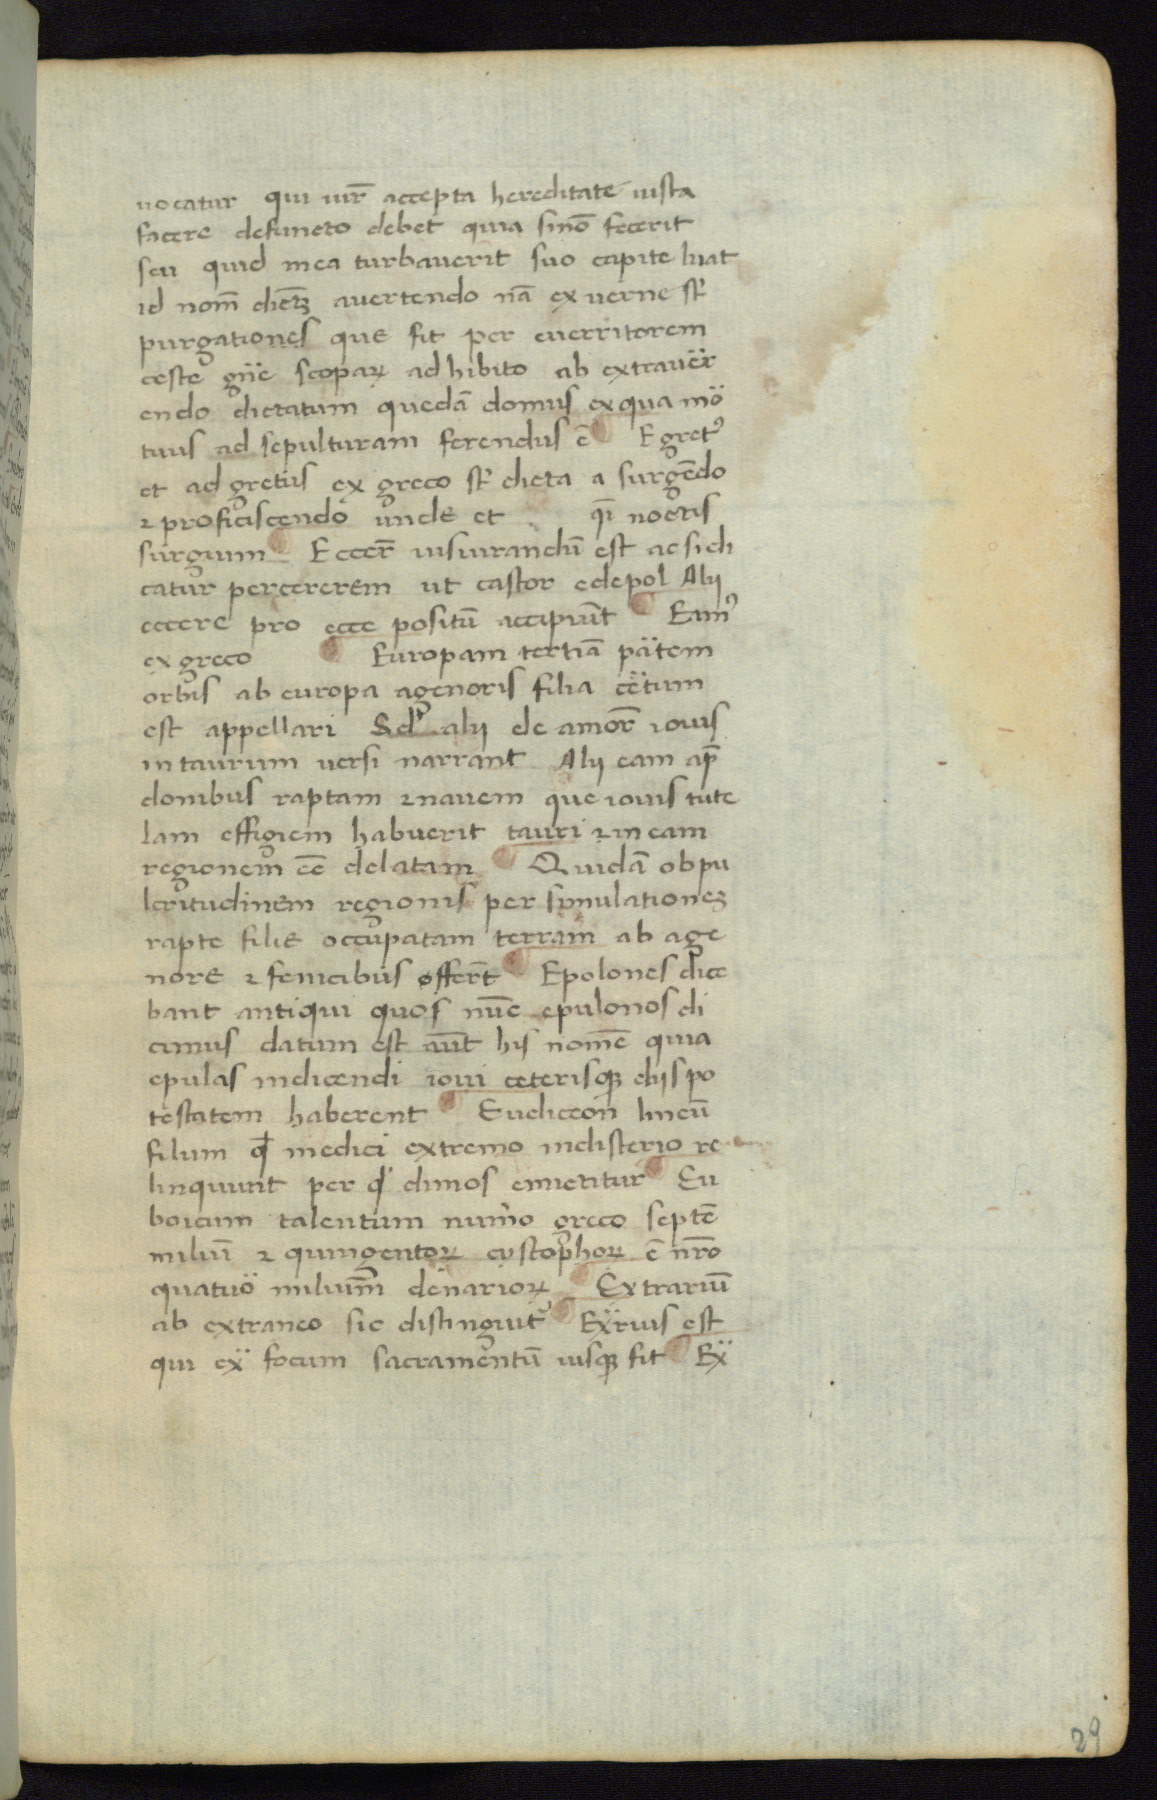 uocatur qui iur̄ accepta hereditate iusta
facere defuncto debet quia sinō fecerit
seu quid mea turbauerit suo capite luat
id nom̄ auertendo nā exuerne st̄
purgationes que fit per euerritorem
certe scoparꝝ adhibito ab extrauer
endo dictatum quedā domus exqua mo
tuus ad sepulturam ferendus ē Egretꝰ
et adgretus ex greco st̄ dicta a surgēdo
⁊ proficiscendo unde et noctis
surgium Eccer̄ iusiurandū est ac sidi
catur percererem ut castor edepol Alij
eccere pro ecce positū accipiūt Eimꝰ
ex greco Europam tertiā pätem
orbis ab europa agenoris filia cëtum
est appellari Sd alij de amor̄ iouis
intaurum uersi narrant Alij eam ap̄
donibus raptam ⁊ nauem que iouis tute
lam effigiem habuerit tauri ⁊ in eam
regionem eē delatam Quidā obpu
lcritudinem regionis per simulationeꝫ
rapte filie occupatam terram ab age
nore ⁊ fenicibus offerēt Epolones dice
bant antiqui quos nūc epulonos di
cimus datum est aūt his nomē quia
epulas indicendi ioui ceterisqꝫ diis po
testatem haberent Eudiceon lineū
filum qđ medici extremo indisterio re
linquunt per qđ dimos emictitur Eu
boicum talentum num̄o greco septē
miliū ⁊ quingentorꝝ cystophorꝝ ē nr̄o
quatuö miliuum̄ denariorꝝ Extrariū
ab extraneo sic distinguitᵘ̉ Exrius est
qui ex̋ focum sacramentū iusqꝫ fit Ex̋
29